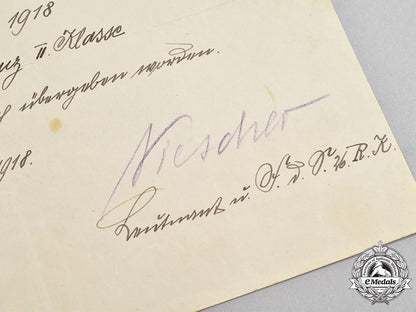 1918
uz II. Klasse
übergeben worden.
1918.
Nischer
Leutnant u. F. d. S. 16. R. K.
eMedals